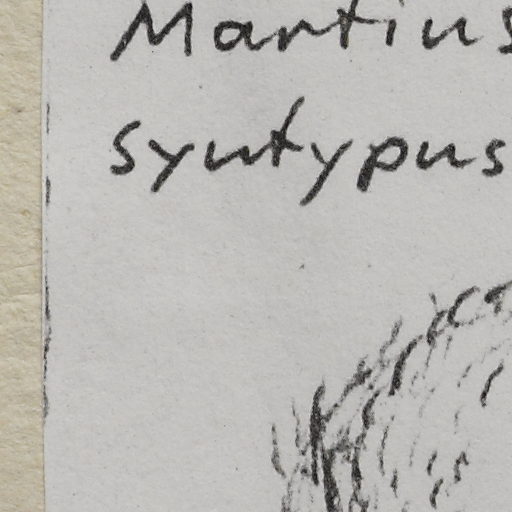 Martius
syntypus